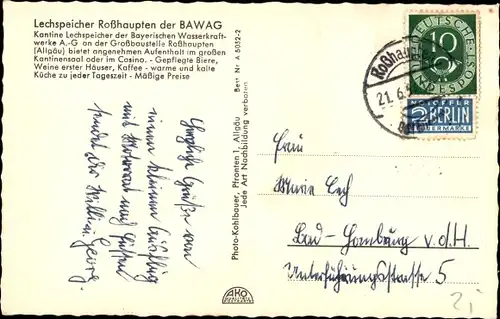 Lechspeicher Roßhaupten der BAWAG
Kantine Lechspeicher der Bayerischen Wasserkraft-
werke A.-G an der Großbaustelle Roßhaupten
(Allgäu) bietet angenehmen Aufenthalt im großen
Kantinensaal oder im Casino. - Gepflegte Biere,
Weine erster Häuser, Kaffee - warme und kalte
Küche zu jeder Tageszeit - Mäßige Preise
Herzliche Grüße von
einem kleinen Ausflug
mit Motorrad nach Füssen
sendet dir Willi u. Georg.
Photo-Kohlbauer, Pfronten 1. Allgäu
Jede Art Nachbildung verboten
Best Nr A 5032-2
AKO
DEUTSCHE
BUNDESPOST
10
Roßhaupten
21. 6.
NOTOPFER
2 BERLIN
STEUERMARKE
Frau
Marie Lech
Bad-Homburg v.d.H.
Unterführungsstrasse 5